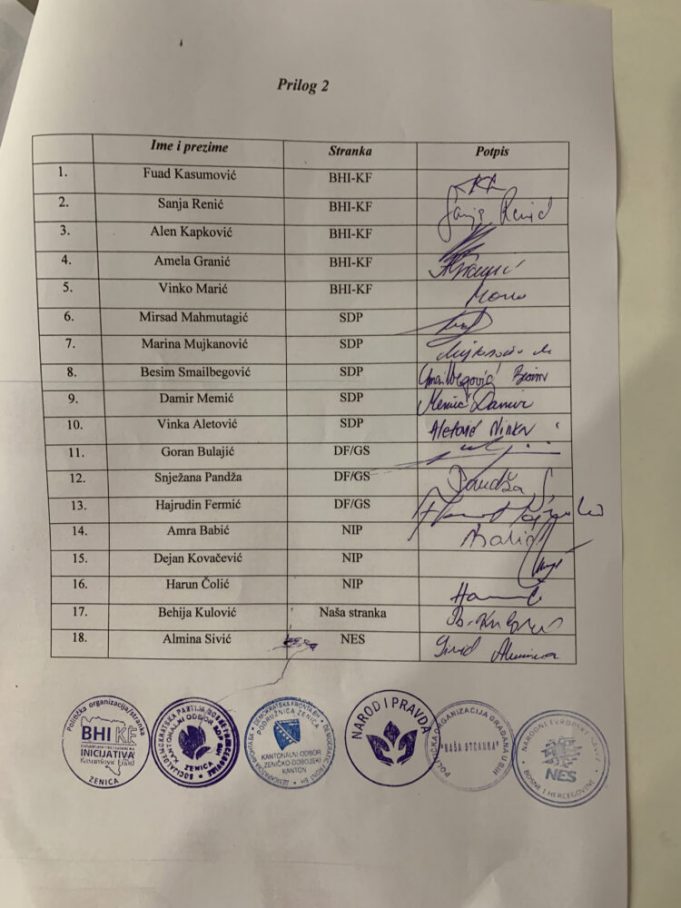 Prilog 2
Ime i prezime Stranka Potpis
1. Fuad Kasumović BHI-KF
2. Sanja Renić BHI-KF Sanja Renić
3. Alen Kapković BHI-KF
4. Amela Granić BHI-KF
5. Vinko Marić BHI-KF
6. Mirsad Mahmutagić SDP
7. Marina Mujkanović SDP
8. Besim Smailbegović SDP Smailbegović Besim
9. Damir Memić SDP Memić Damir
10. Vinka Aletović SDP Aletović Vinka
11. Goran Bulajić DF/GS
12. Snježana Pandža DF/GS Pandža S
13. Hajrudin Fermić DF/GS
14. Amra Babić NIP Babić
15. Dejan Kovačević NIP
16. Harun Čolić NIP
17. Behija Kulović Naša stranka
18. Almina Sivić NES Sivić Almina
Politička organizacija/Stranka
BHI KF
INICIJATIVA
Kasumović Fuad
ZENICA
SOCIJALDEMOKRATSKA PARTIJA BOSNE I HERCEGOVINE
KANTONALNI ODBOR SDP BiH
ZENICA
DEMOKRATSKA FRONTA BIH
PODRUŽNICA ZENICA
KANTONALNI ODBOR
ZENIČKO-DOBOJSKI
KANTON
NAROD I PRAVDA
POLITIČKA ORGANIZACIJA GRAĐANA U BIH
"NAŠA STRANKA"
NARODNI EVROPSKI SAVEZ
NES
BOSNE I HERCEGOVINE